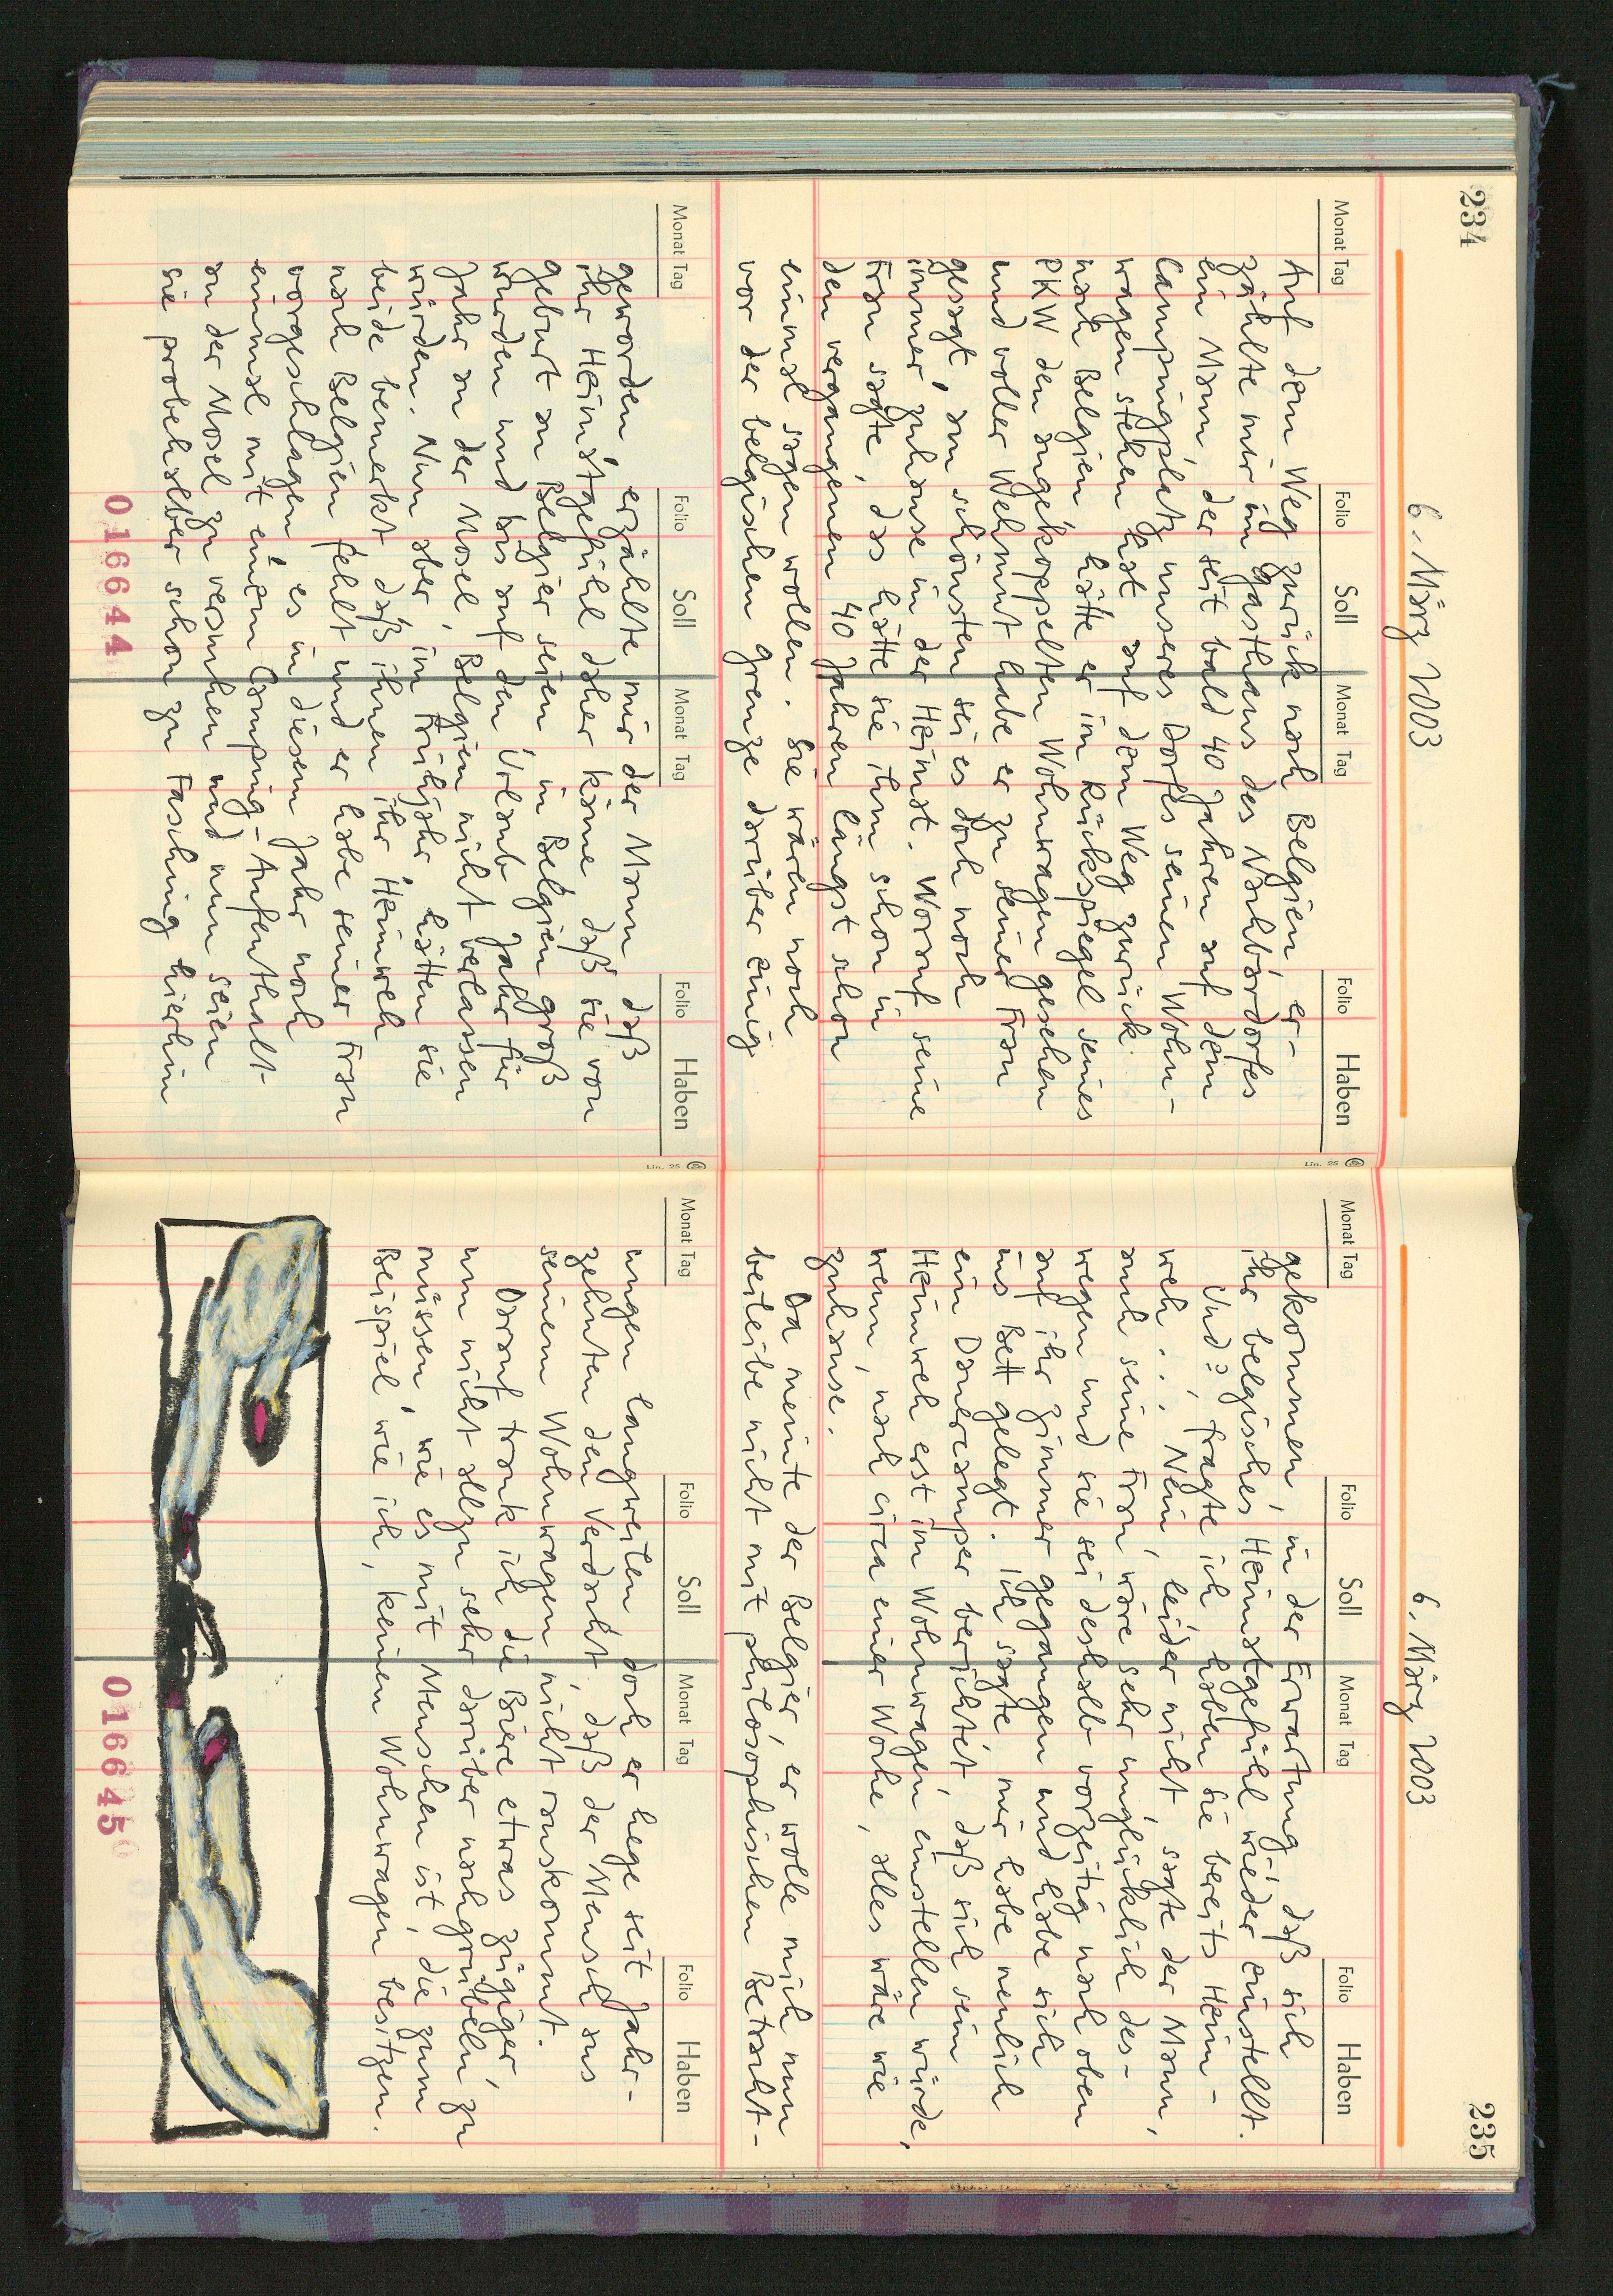 234
6. März 2003
Monat Tag Folio Soll Monat Tag Folio Haben
Auf dem Weg zurück nach Belgien, er-
zählte mir im Gasthaus des Nachbardorfes
ein Mann, der seit bald 40 Jahren auf dem
Campingplatz unseres Dorfes seinen Wohn-
wagen stehen hat, auf dem Weg zurück
nach Belgien, hätte er im Rückspiegel seines
PKW den angekoppelten Wohnwagen gesehen
und voller Wehmut habe er zu seiner Frau
gesagt, am schönsten sei es doch noch
immer zuhause in der Heimat. Worauf seine
Frau sagte, das hätte sie ihm schon in
den vergangenen 40 Jahren längst schon
einmal sagen wollen. Sie wären noch
vor der belgischen Grenze darüber einig
Monat Tag Folio Soll Monat Tag Folio Haben
Lin. 25
Lin. 25
geworden, erzählte mir der Mann, daß
ihr Heimatgefühl daher käme, daß sie von
Geburt an Belgier seien, in Belgien groß
wurden und bis auf den Urlaub Jahr für
Jahr an der Mosel, Belgien nicht verlassen
würden. Nun aber, im Frühjahr, hätten sie
beide bemerkt, daß ihnen ihr Heimweh
nach Belgien fehlt und er habe seiner Frau
vorgeschlagen, es in diesem Jahr noch
einmal mit einem Camping-Aufenthalt
an der Mosel zu versuchen und nun seien
sie probehalber schon zu Fasching hierhin
016644
235
6. März 2003
Monat Tag Folio Soll Monat Tag Folio Haben
gekommen, in der Erwartung, daß sich
ihr belgisches Heimatgefühl wieder einstellt.
Und?, fragte ich, haben Sie bereits Heim-
weh... Nein, leider nicht, sagte der Mann,
auch seine Frau, wäre sehr unglücklich des-
wegen und sie sei deshalb vorzeitig nach oben
auf ihr Zimmer gegangen und habe sich
ins Bett gelegt. Ich sagte, mir habe neulich
ein Dauercamper berichtet, daß sich sein
Heimweh erst im Wohnwagen einstellen würde,
wenn, nach circa einer Woche, alles wäre wie
zuhause.
Da meinte der Belgier, er wolle mich nun
beileibe nicht mit philosophischen Betracht-
Monat Tag Folio Soll Monat Tag Folio Haben
ungen langweilen, doch er hege seit Jahr-
zehnten den Verdacht, daß der Mensch aus
seinem Wohnwagen nicht rauskommt.
Darauf trank ich die Biere etwas zügiger,
um nicht allzu sehr darüber nachgrübeln zu
müssen, wie es mit Menschen ist, die zum
Beispiel wie ich, keinen Wohnwagen besitzen.
016645